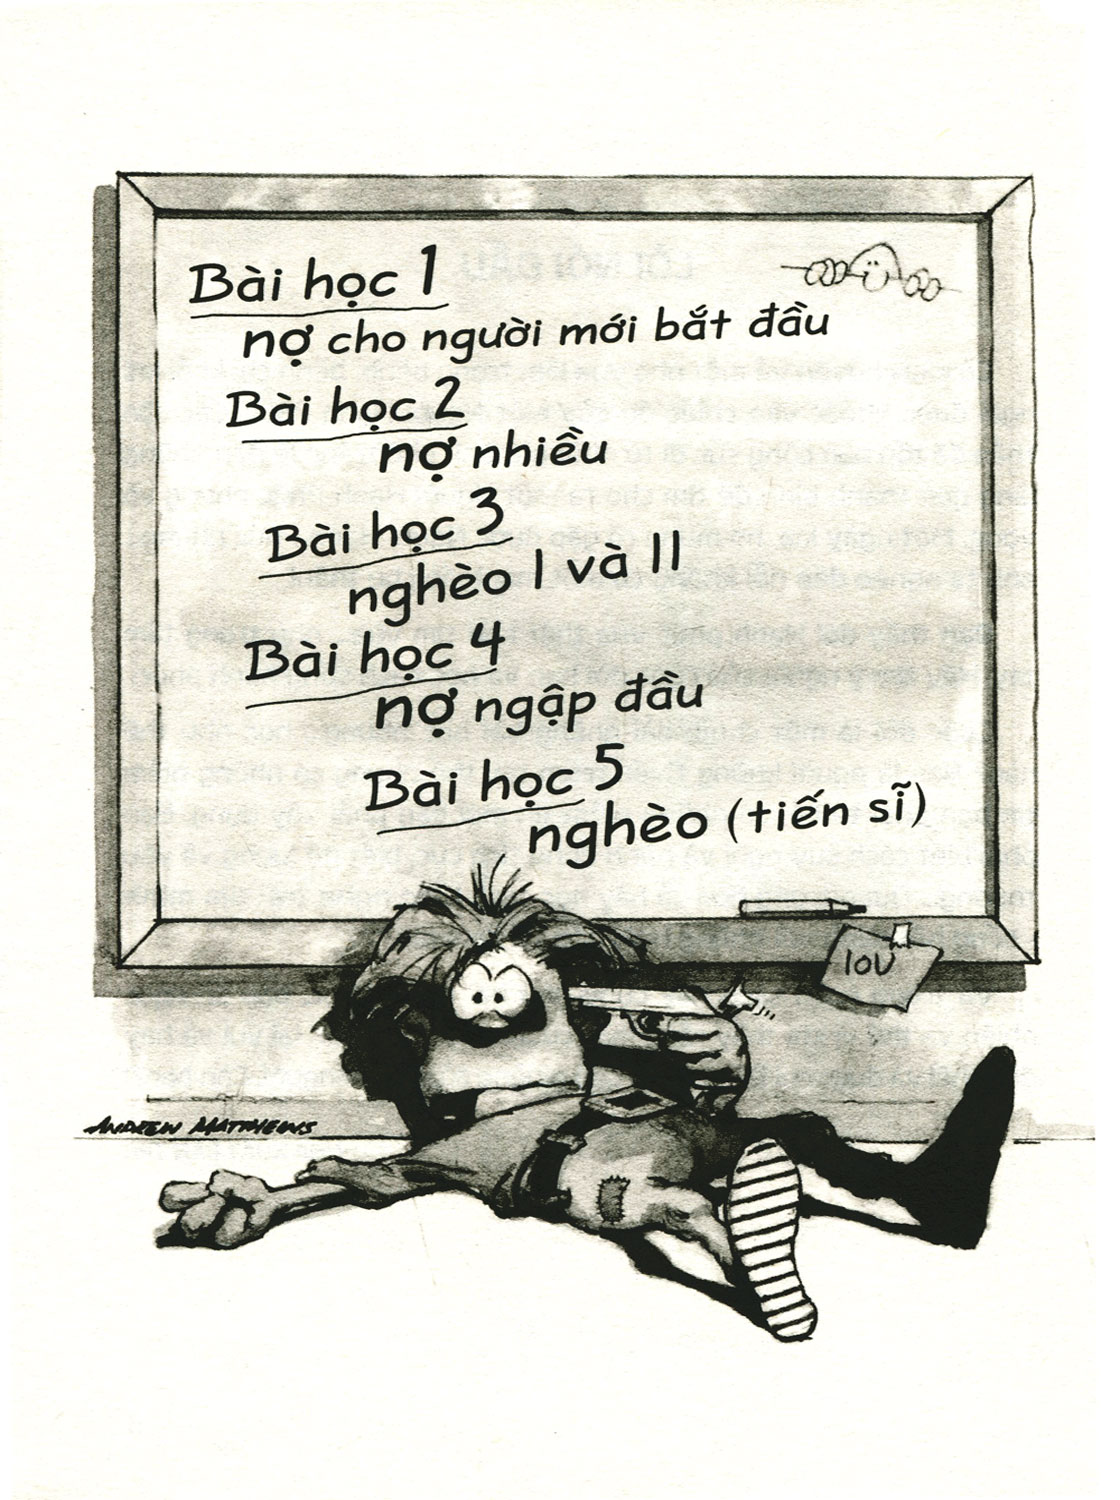 Bài học 1
nợ cho người mới bắt đầu
Bài học 2
nợ nhiều
Bài học 3
nghèo I và II
Bài học 4
nợ ngập đầu
Bài học 5
nghèo (tiến sĩ)
IOU
ANDREW MATTHEWS